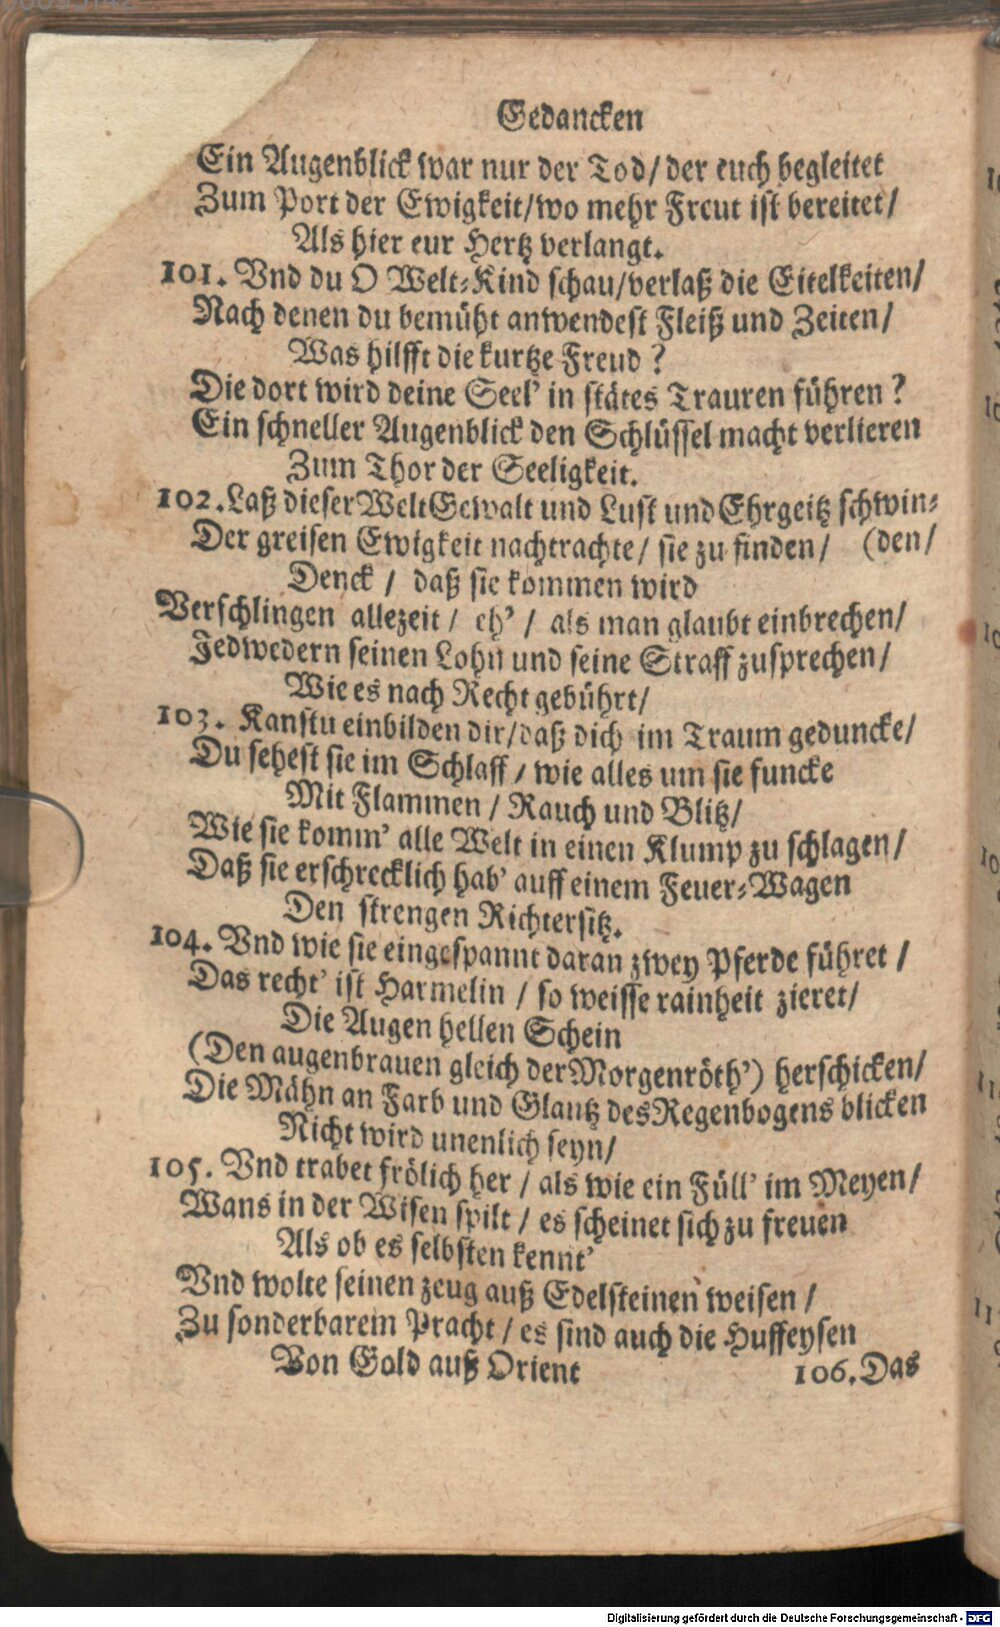 Gedancken
Ein Augenblick war nur der Tod/ der euch begleitet
Zum Port der Ewigkeit/wo mehr Freut ist bereitet/
Als hier eur Hertz verlangt.
101. Vnd du O Welt-Kind schau/verlaß die Eitelkeiten/
Nach denen du bemüht anwendest Fleiß und Zeiten/
Was hilfft die kurtze Freud ?
Die dort wird deine Seel' in stätes Trauren führen ?
Ein schneller Augenblick den Schlüssel macht verlieren
Zum Thor der Seeligkeit.
102. Laß dieser Welt Gewalt und Lust und Ehrgeitz schwin-
Der greisen Ewigkeit nachtrachte/ sie zu finden/ (den/
Denck / daß sie kommen wird
Verschlingen allezeit / eh' / als man glaubt einbrechen/
Jedwedern seinen Lohn und seine Straff zusprechen/
Wie es nach Recht gebührt/
103. Kanstu einbilden dir/daß dich im Traum geduncke/
Du sehest sie im Schlaff / wie alles um sie funcke
Mit Flammen / Rauch und Blitz/
Wie sie komm' alle Welt in einen Klump zu schlagen/
Daß sie erschrecklich hab' auff einem Feuer-Wagen
Den strengen Richtersitz.
104. Vnd wie sie eingespannt daran zwey Pferde führet /
Das recht' ist Harmelin / so weisse rainheit zieret/
Die Augen hellen Schein
(Den augenbrauen gleich der Morgenröth') herschicken/
Die Mähn an Farb und Glantz des Regenbogens blicken
Nicht wird unenlich seyn/
105. Vnd trabet frölich her / als wie ein Füll' im Meyen/
Wans in der Wisen spilt / es scheinet sich zu freuen
Als ob es selbsten kennt'
Vnd wolte seinen zeug auß Edelsteinen weisen /
Zu sonderbarem Pracht / es sind auch die Huffeysen
Von Gold auß Orient
106. Das
Digitalisierung gefördert durch die Deutsche Forschungsgemeinschaft - DFG